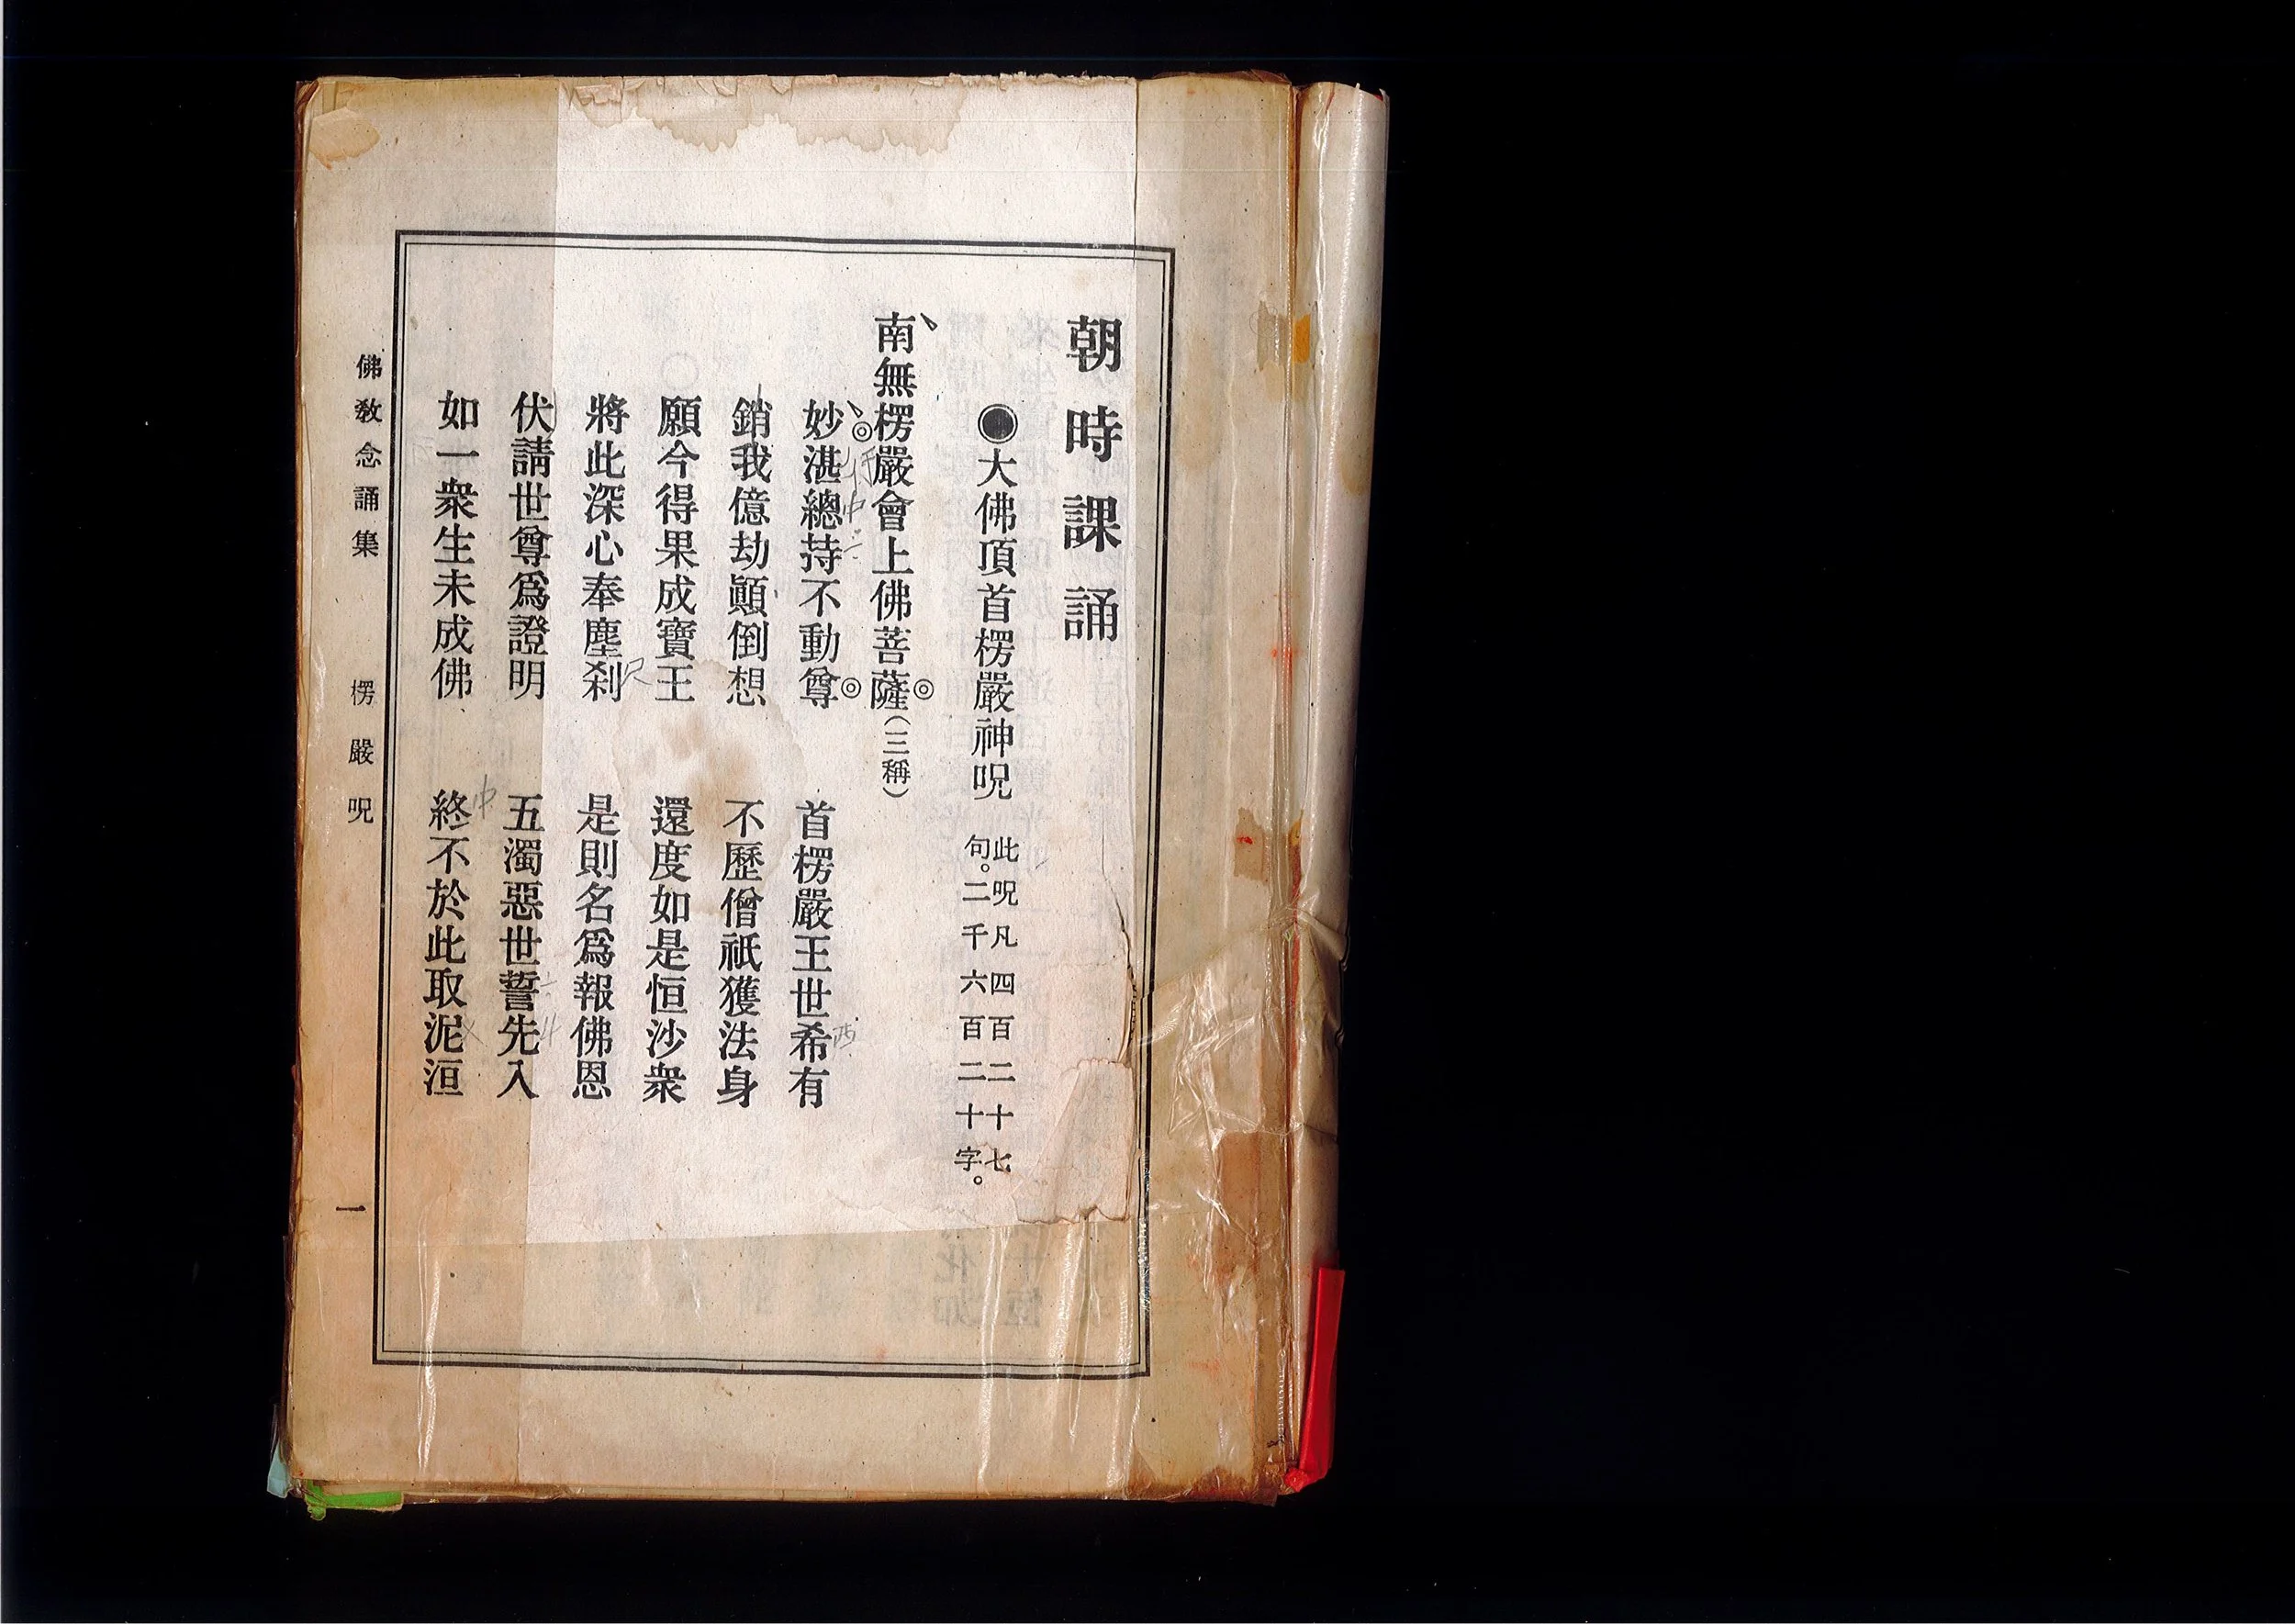 朝時課誦
◉大佛頂首楞嚴神呪 此呪凡四百二十七
句。二千六百二十字。
南無楞嚴會上佛菩薩(三稱)
妙湛總持不動尊 首楞嚴王世希有
銷我億劫顚倒想 不歷僧祇獲法身
願今得果成寶王 還度如是恒沙衆
將此深心奉塵刹 是則名爲報佛恩
伏請世尊爲證明 五濁惡世誓先入
如一衆生未成佛 終不於此取泥洹
佛敎念誦集 楞嚴呪 一